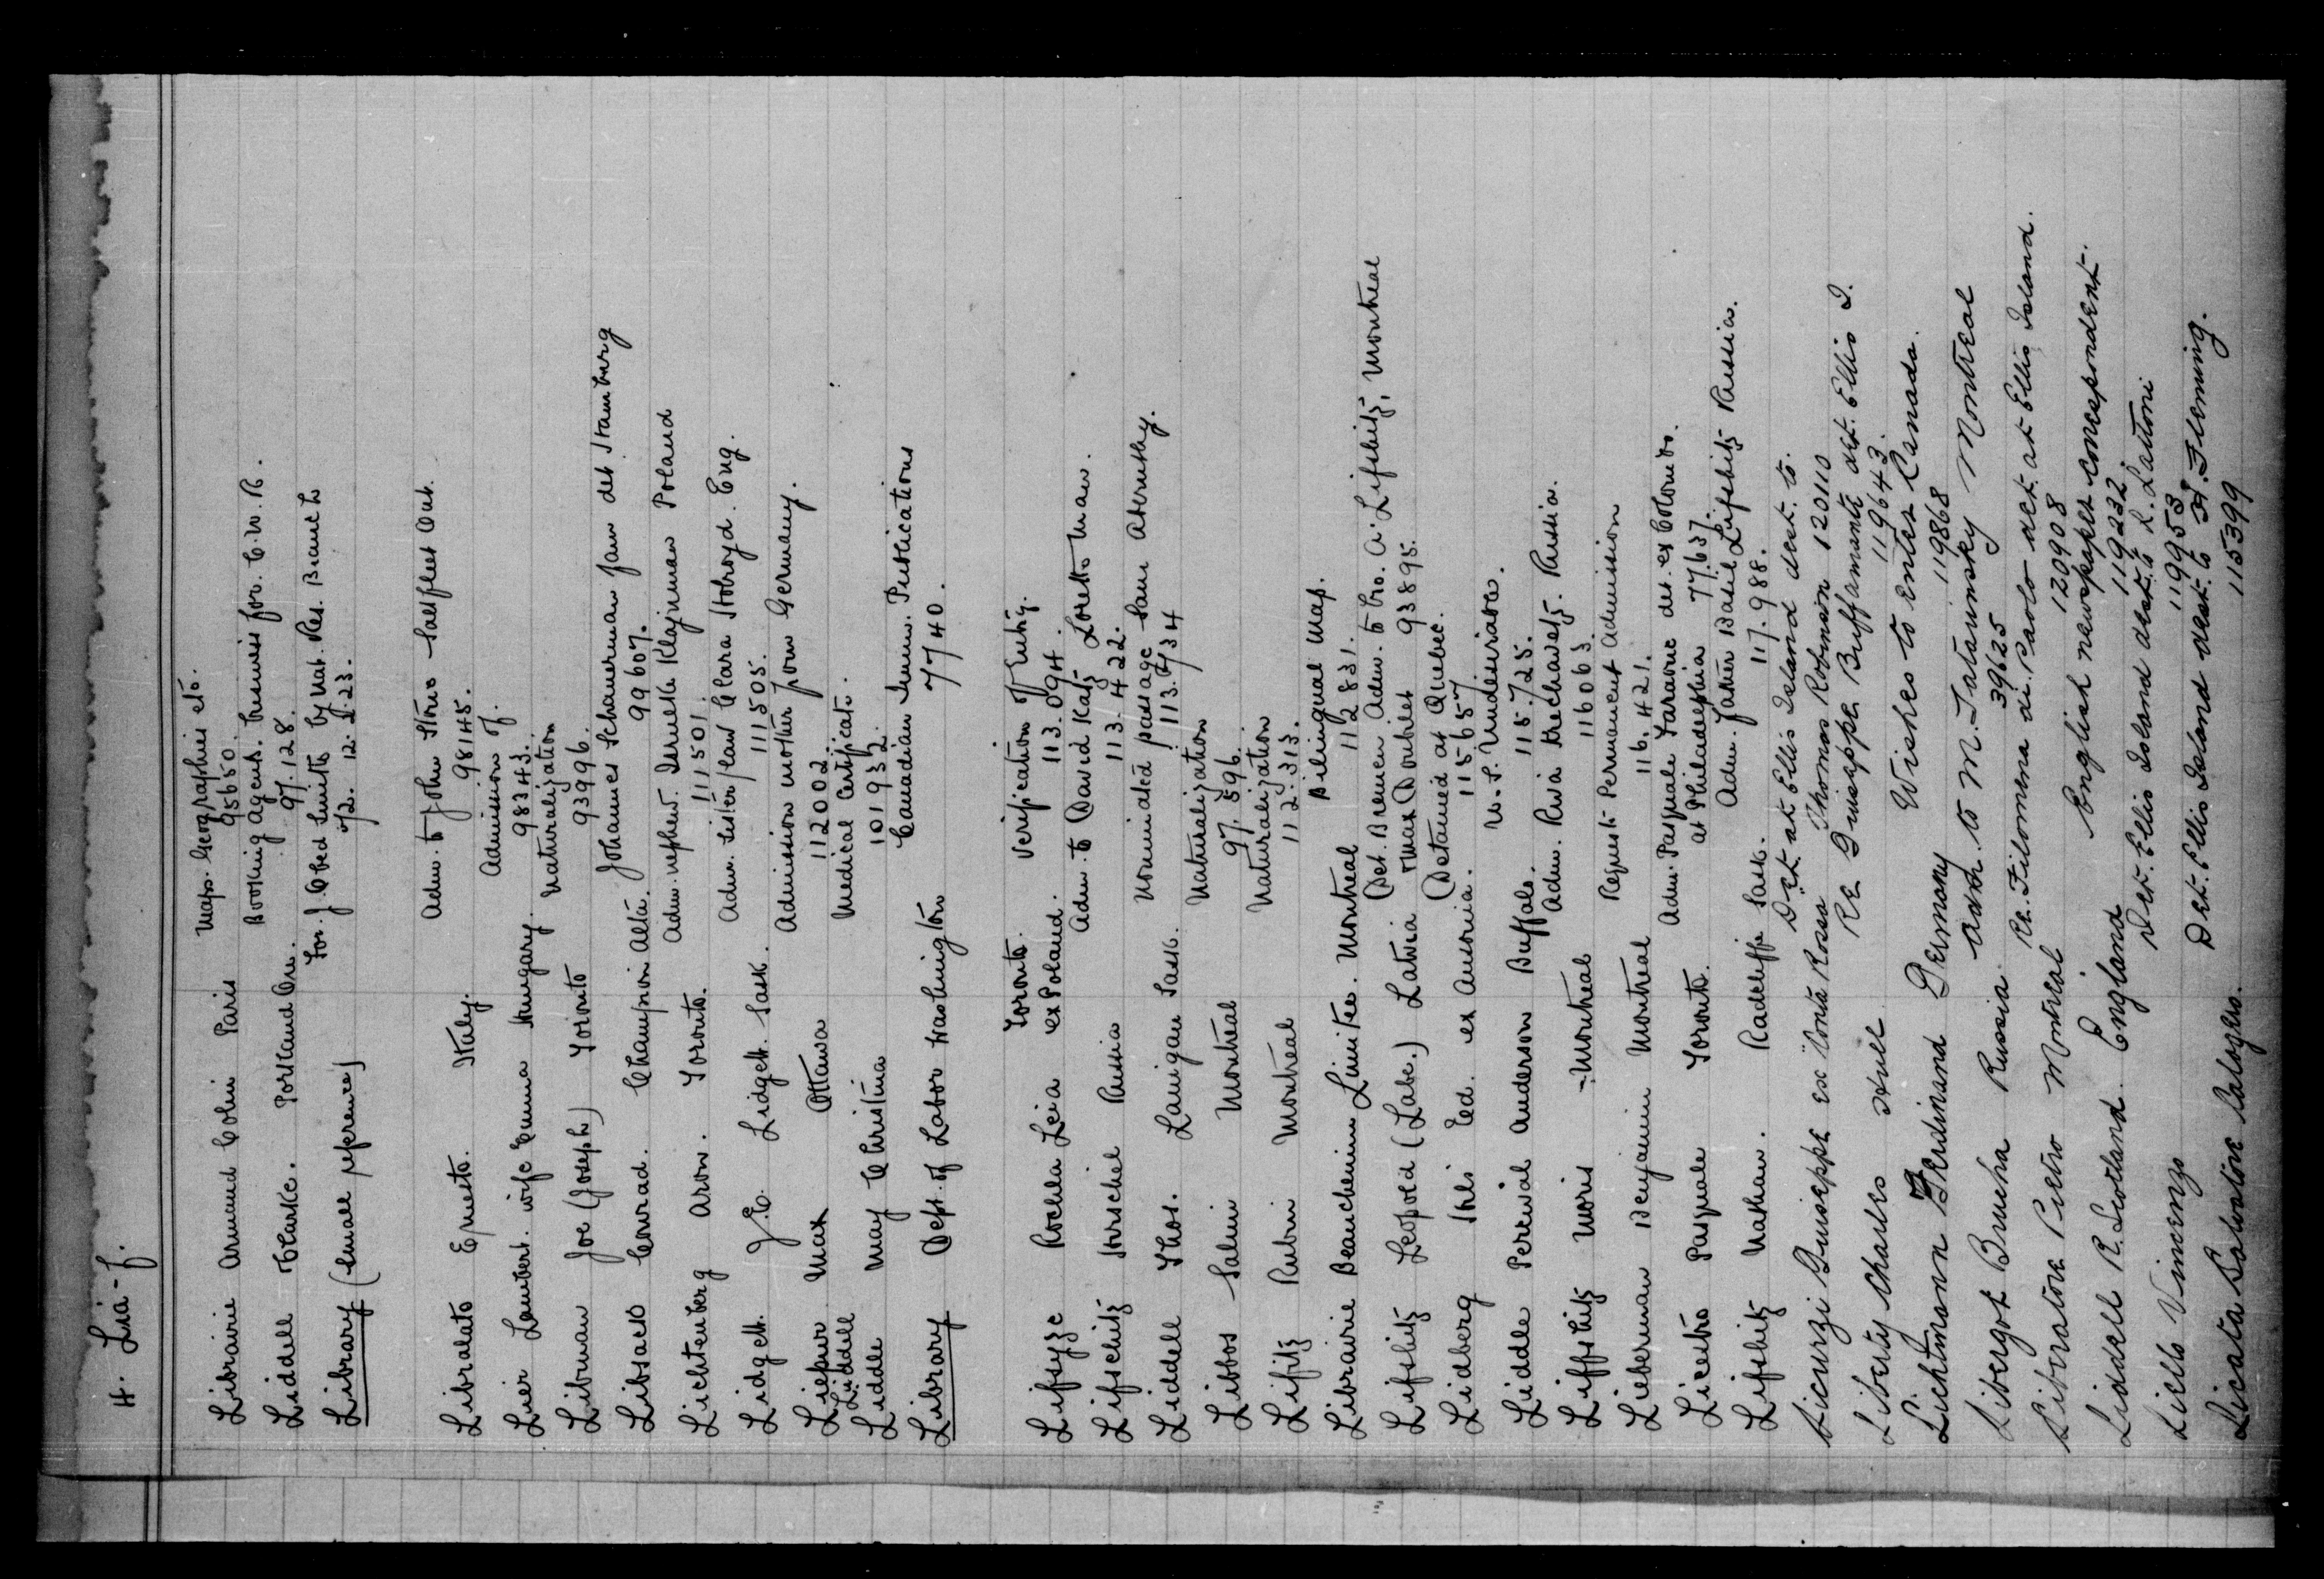 4. Lia-f.
Librairie Armand Colin Paris Maps. Geographies etc.
95650.
Liddell Clarke. Portland Ore. Booking Agents. business for. C.W.R.
97.128.
Library (small reference) for. J. Obed Smith by Nat. Res. Branch
12.2.23.
Libralato Ernesto. Italy. Adm. to John Salfleet Ont.
98145.
Lier Lambert. wife Emma Hungary. Admission of.
98343.
Libman Joe (Joseph) Toronto Naturalization
93996.
Libsack Conrad. Champion Alta. Johannes Schauerman fam det Hamburg
99607.
Lichtenberg Aron. Toronto. Adm. nephew. Klajnman Poland
111501.
Lidgett. J.E. Lidgett. Sask. Adm. Sister Clara Eng.
111505.
Liefur Max Ottawa Admission mother from Germany.
112002.
Liddell
Liddle May Christina Medical Certificate.
101932.
Library Dept. of Labor Washington Canadian Imm. Publications
7740.
Lifsyzc Rochla Leia Toronto. ex Poland. Verification of Entry.
113.094.
Lifschitz Herschel Russia Adm. to David Katz Loretto Man.
113.422.
Liddell Thos. Lanigan Sask. Nominated passage Sam Abernethy.
113.734
Libbos Salim Montreal Naturalization
97.596.
Lifitz Rubin Montreal Naturalization
112.313.
Librairie Beauchemin Limitee. Montreal Bilingual Map.
112831.
Lifshitz Leopold (Labe.) Latvia (Det. Bremen Adm. to bro. A. Lifshitz, Montreal
93895.
Lidberg Ed. ex Ausonia. (Detained at Quebec.
115657
Liddle Percival Anderson Buffalo. U.S. Undesirable.
115.725.
Liffshitz Moris Montreal Adm. Riva Russia.
116063.
Lieberman Benjamin Montreal Request Permanent Admission
116.421.
Licastro Pasquale Toronto. Adm. Pasquale det. ex Colombo.
at Philadelphia 77637.
Lifshitz Nathan. Radcliffe Sask. Adm. Father Basil Lifshitz Russia.
117.988.
Licurzi Guiseppe ex Conte Rosso Det at Ellis Island dest. to.
Thomas Robinson 120110
Liberty Charles Hull Re Guiseppe Buffamante det. Ellis I.
119643.
Lichtmann Ferdinand Germany Wishes to enter Canada.
119868
Libergot Brucha Russia. Adm to M. Tatarnsky Montreal
39625
Liberatore Pietro Montreal Re. Filomena di Paolo det. at Ellis Island.
120908
Liddell R. Scotland. England English newspaper correspondent.
119232.
Liello Vincenzo Det. Ellis Island dest. to R. Lattoni
119953
Licata Salvatore Calogero. Det. Ellis Island dest. to H. Fleming.
115399